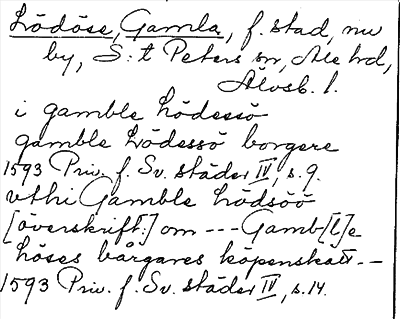 Lödöse, Gamla, f. stad, nu
by, S:t Peters sn, Ale hd,
Älvsb. l.
i gamble Lödessö
gamble Lödessö borgere
1593 Priv. f. Sv. städer IV, s. 9.
vthi Gamble Lödsöö
[överskrift:] om --- Gamb[l]e
Löses bårgares köpenskatt. --
1593 Priv. f. Sv. städer IV, s. 14.